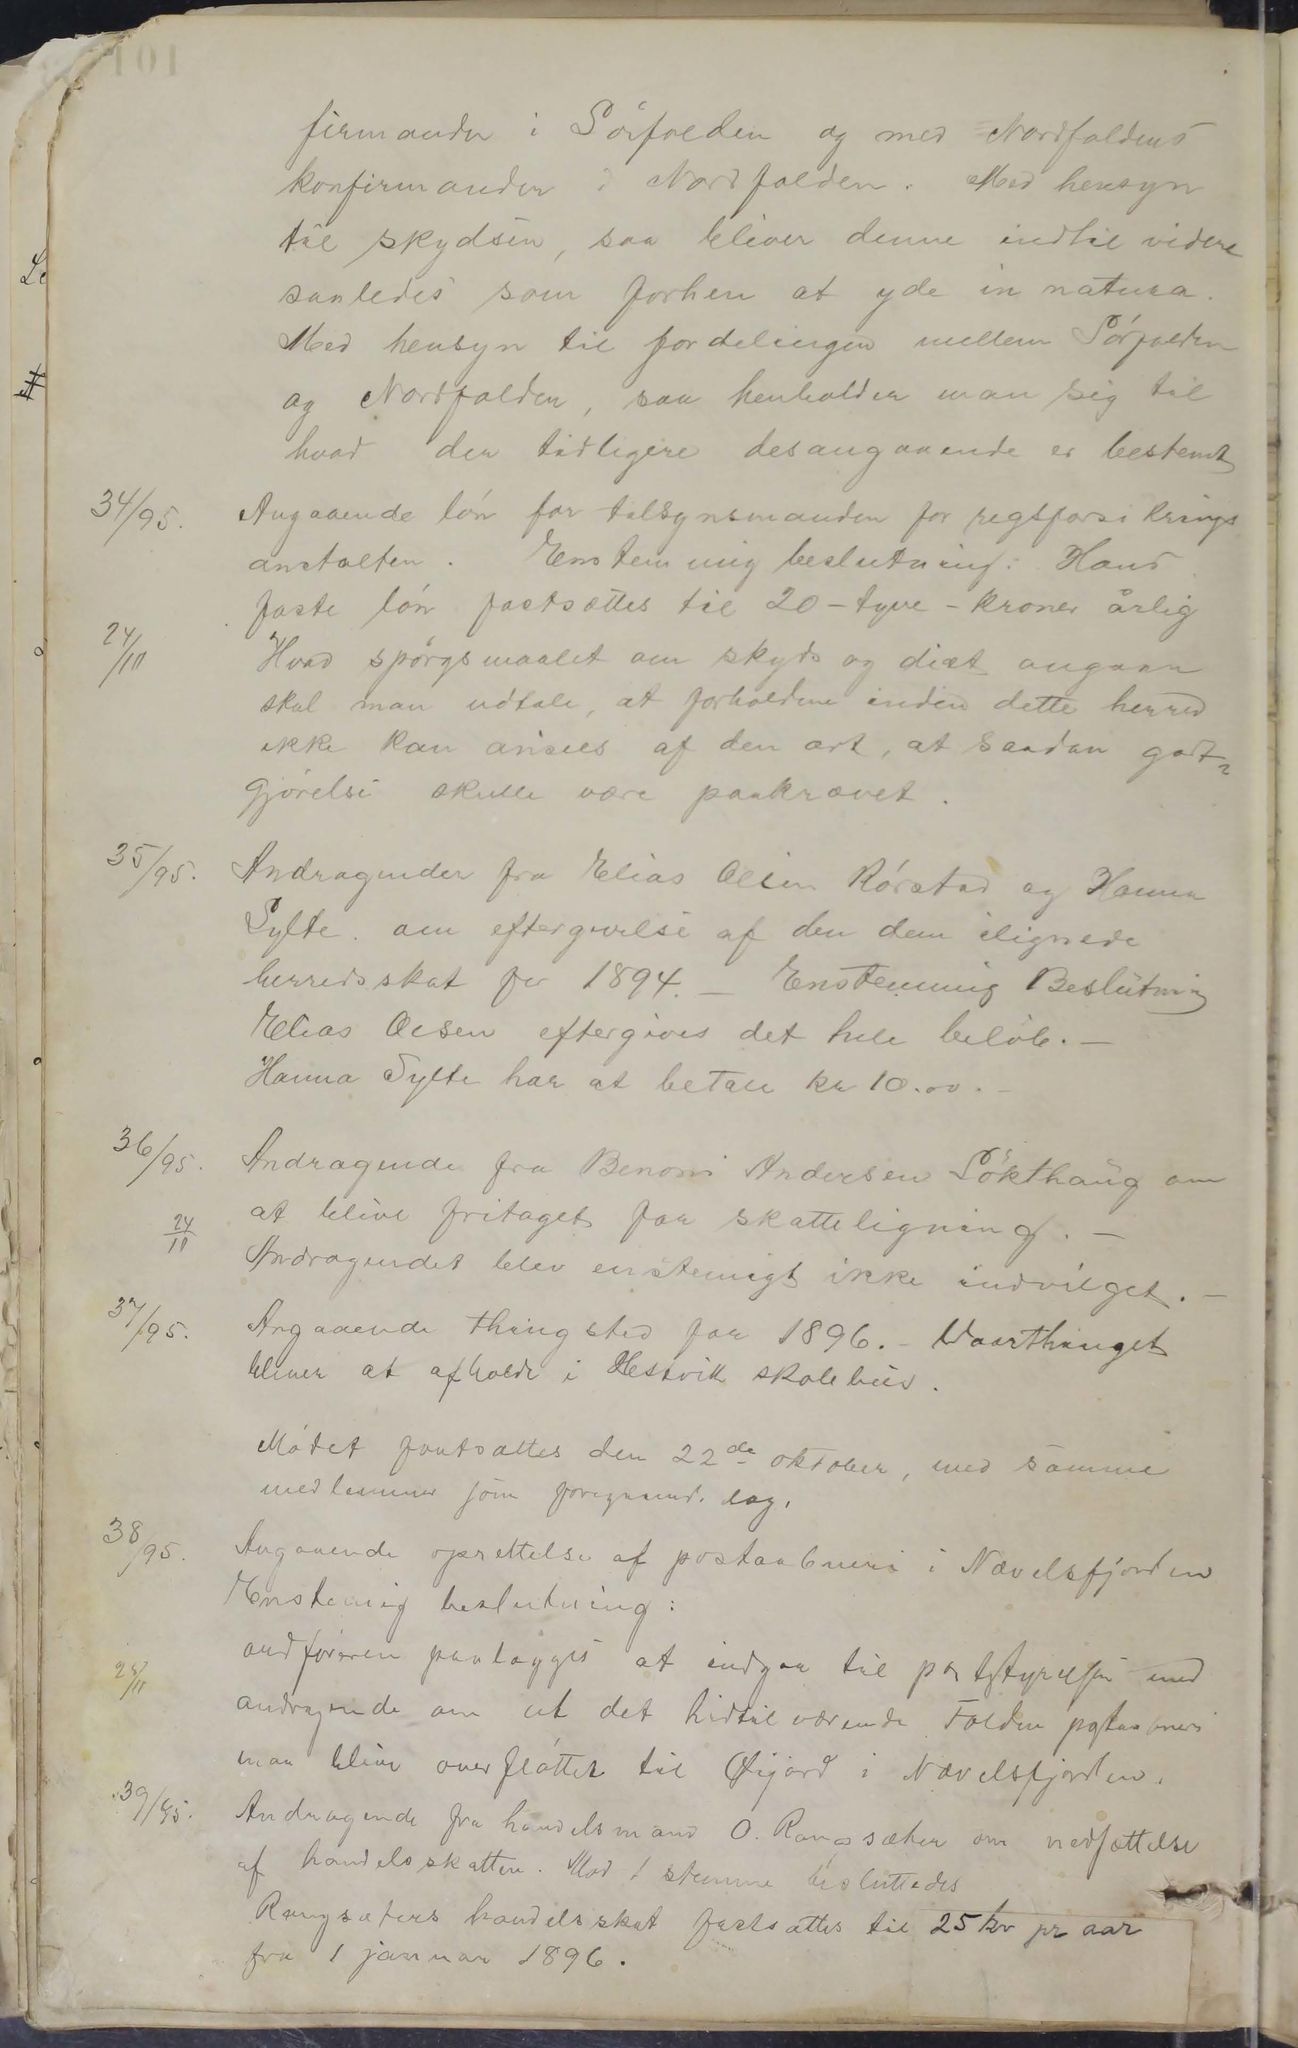 firmander i Sörfolden og med Nordfoldens
konfirmander i Nordfolden. Med hensyn
til skydsen, saa bliver denne indtil videre
saaledes som forhen at yde in natura.
Med hensyn til fordelingen mellem Sörfolden
og Nordfolden, saa henholder man sig til
hvad der tidligere desangaaende er bestemt
34/95. Angaaende lön for tilsynsmanden for
anstalten. Enstemmig beslutning: Hans
faste lön fastsættes til 20 - tyve - kroner årlig
24/10 Hvad spörgsmaalet om skyds og diæt angaar
skal man udtale, at forholdene inden dette herred
ikke kan ansees af den art, at saadan godt-
gjörelse skulle være paakrævet.
35/95. Andragender fra Elias Olsen Rörstad og Hanna
Sylte. om eftergivelse af den dem ilignede
herredsskat for 1894. - Enstemmig Beslutning
Elias Olsen eftergives det hele belöb. -
Hanna Sylte har at betale kr 10.00. -
36/95. Andragende fra Benoni Andersen Sökthaug om
at blive fritaget for skatteligning. -
24/10
Andragendet blev enstemigt ikke indvilget. -
37/95. Angaaende thingsted for 1896. - Vaarthinget
bliver at afholde i Hestvik skolehus.
Mödet fortsattes den 22de oktober, med samme
medlemmer som foregaaend. dag.
38/95. Angaaende oprettelse af postaabneri i Nævelsfjorden
Enstemig beslutning:
ordföreren paalægges at indgaa til poststyrelsen med
andragende om at det hidtil værende Folden postaabneri
maa blive overflöttet til Öijord i Nævelsfjorden.
39/95. Andragende fra handelsmand O. Rangsæter om nedsættelse
af handelsskatten. Mod 1 stemme besluttedes
Rangsæters handelsskat fastsættes til 25 kr pr aar
fra 1 januar 1896.